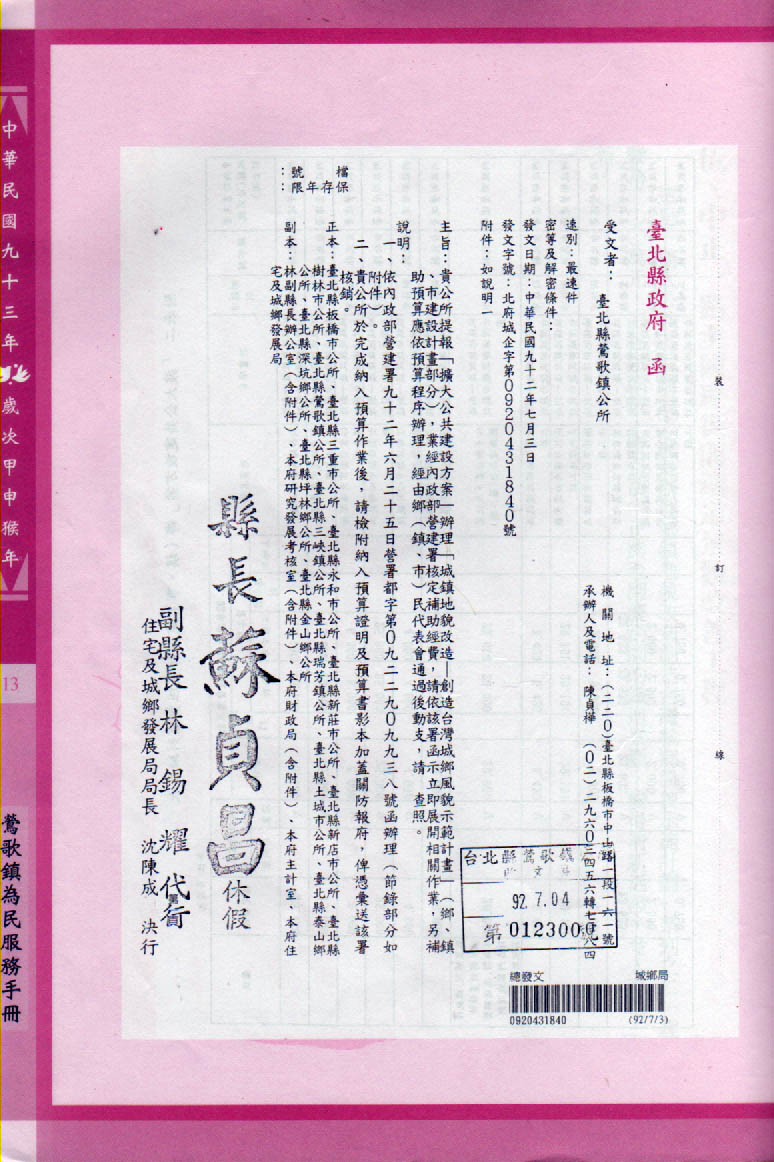 檔號：
保存年限：
臺北縣政府　函
受文者：臺北縣鶯歌鎮公所
機關地址：（二二０）臺北縣板橋市中山路一段一六一號
承辦人及電話：陳貞樺（０二）二九六０三四五六轉七
速別：最速件
密等及解密條件：
發文日期：中華民國九十二年七月三日
發文字號：北府城企字第0920431840號
附件：如說明一
主旨：貴公所提報「擴大公共建設方案—辦理「城鎮地貌改造—創造台灣城鄉風貌示範計畫」（鄉、鎮
、市建設計畫部分），業經內政部營建署核定補助經費，請依該署函示立即展開相關作業，另補
助預算應依預算程序辦理，經由鄉（鎮、市）民代表會通過後動支，請　查照。
說明：
一、依內政部營建署九十二年六月二十五日營署都字第０九二二九０九九三八號函辦理（節錄部分如
附件）。
二、貴公所於完成納入預算作業後，請檢附納入預算證明及預算書影本加蓋關防報府，俾憑彙送該署
核銷。
正本：臺北縣板橋市公所、臺北縣三重市公所、臺北縣永和市公所、臺北縣新莊市公所、臺北縣新店市公所、臺北縣
樹林市公所、臺北縣鶯歌鎮公所、臺北縣三峽鎮公所、臺北縣瑞芳鎮公所、臺北縣土城市公所、臺北縣泰山鄉
公所、臺北縣深坑鄉公所、臺北縣坪林鄉公所、臺北縣金山鄉公所
副本：林副縣長辦公室（含附件）、本府研究發展考核室（含附件）、本府財政局（含附件）、本府主計室、本府住
宅及城鄉發展局
縣長蘇貞昌　休假
副縣長林錫耀代行
住宅及城鄉發展局局長　沈陳成　決行
裝
訂
線
台北縣鶯歌鎮
92.7.04
第0123000
總發文　城鄉局
0920431840　(92/7/3)
中華民國九十三年　歲次甲申猴年
13
鶯歌鎮為民服務手冊